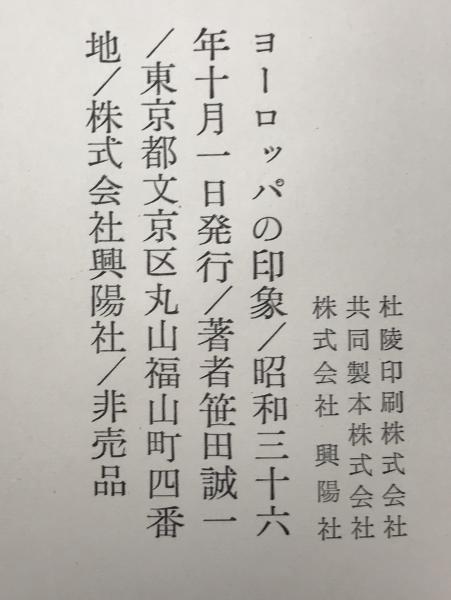 杜陵印刷株式会社
共同製本株式会社
株式会社 興陽社
ヨーロッパの印象/昭和三十六
年十月一日発行/著者笹田誠一
/東京都文京区丸山福山町四番
地/株式会社興陽社/非売品